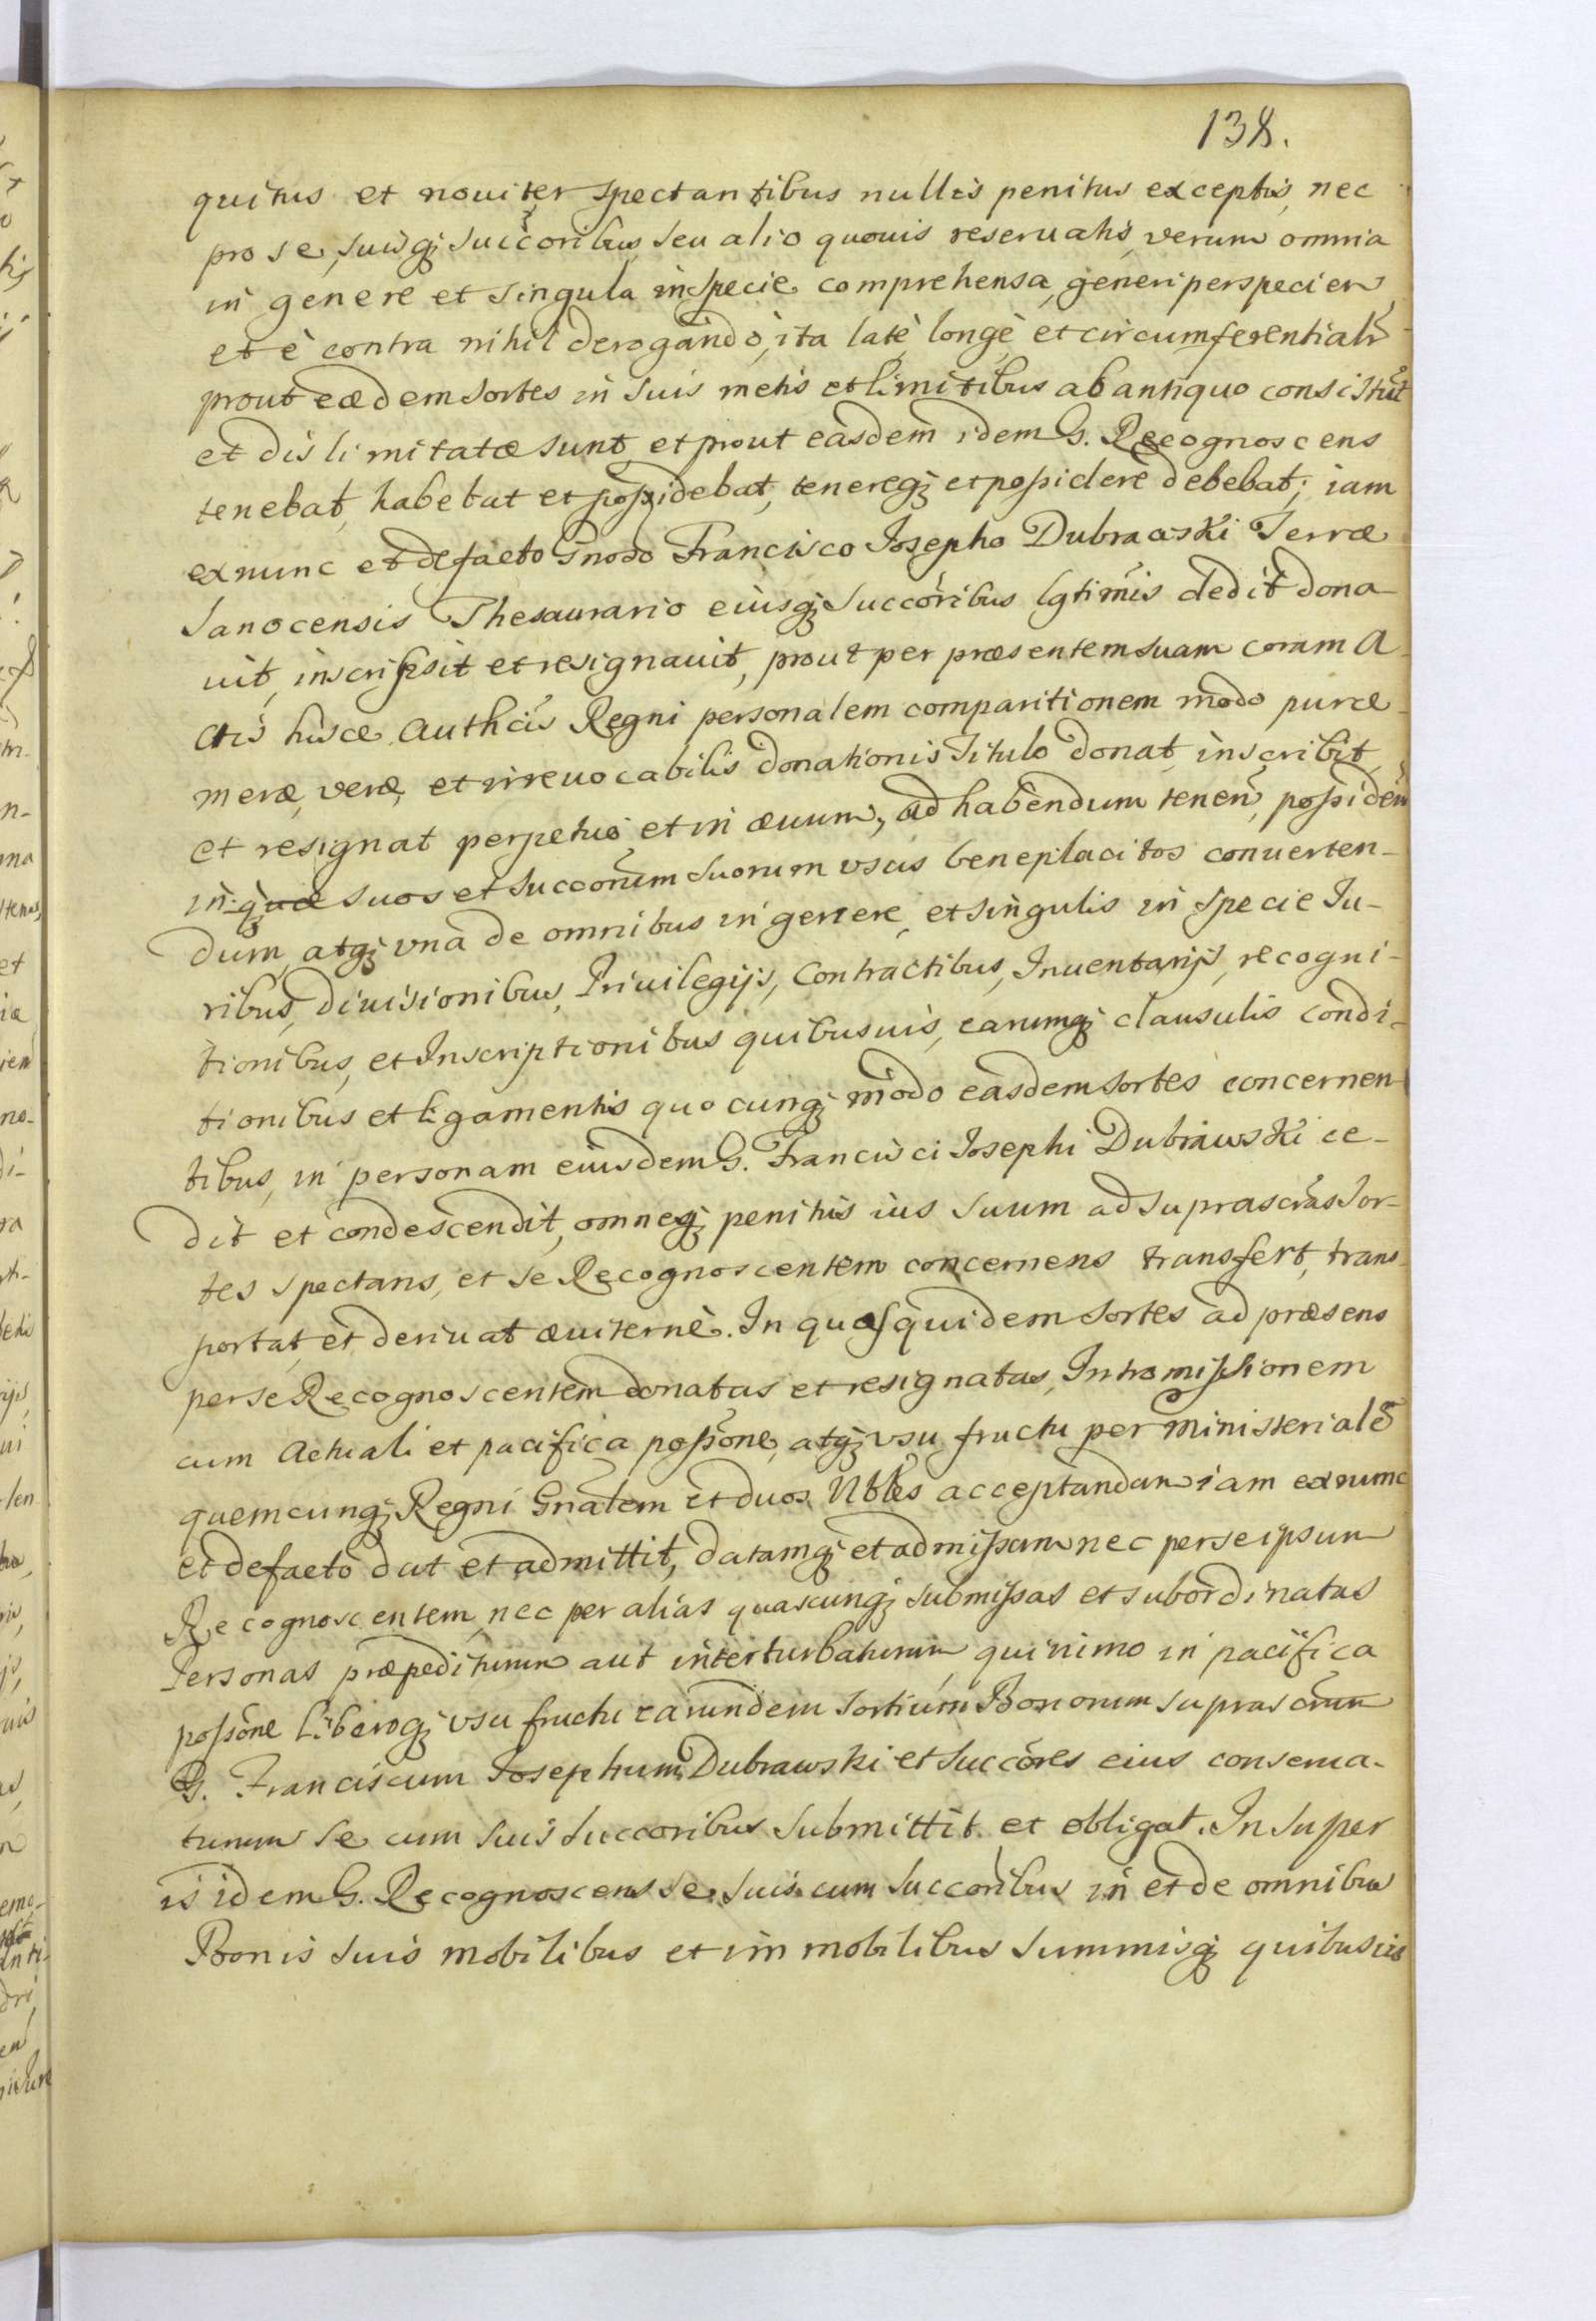 138.
quitus et nouiter spectantibus nullis penitus exceptis, nec
pro se, suisq; succoribus, seu alio quouis reseruatis, verum omnia
in genere et singula in specie comprehensa, generi per speciem,
et è contra nihil derogando, ita latè longè et circumferentialr
prout eædem sortes in suis metis et limitibus ab antiquo consistut
et dislimitatæ sunt, et prout easdem idem G. Recognoscens
tenebat, habebat et possidebat, tenereq; et possidere debebat; iam
ex nunc et de facto Gnoso Francisco Josepho Dubrawski Terræ
Sanocensis Thesaurario eiusq; succoribus lgtimis dedit dona
uit, inscripsit et resignauit, prout per præsentem suam coram A
ctis hisce Authcis Regni personalem comparitionem modo puræ
meræ, veræ, et irreuocabilis donationis Titulo donat, inscribit,
et resignat perpetuò et in æuum, ad habendum tenen, possiden
inq; suos et succorum suorum vsus beneplacitos conuerten-
dum, atq; vnà de omnibus in genere, et singulis in specie Iu-
ribus, Diuisionibus, Priuilegijs, Contractibus, Inuentarijs, recogni-
tionibus, et Inscriptionibus quibusuis, earumq; clausulis condi-
tionibus et ligamentis quocunq; modo easdem sortes concernen
tibus, in personam eiusdem G. Francisci Josephi Dubrawski ce-
dit et condescendit, omneq; penitus ius suum ad suprascras sor-
tes spectans, et se Recognoscentem concernens transfert, trans
portat, et deriuat æuiternè. In quas quidem sortes ad præsens
per se Recognoscentem donatas et resignatas, Intromissionem
cum actuali et pacifica possone, atq; vsu fructu per Ministeriale
quemcunq; Regni Gnalem et duos Nbles acceptandam iam ex nunc
et de facto dat et admittit, datamq; et admissam nec per se ipsum
Recognoscentem, nec per alias quascunq; submissas et subordinatas
Personas præpediturum aut interturbaturum, quinimo in pacifica
possone liberoq; vsu fructu earundem sortium Bonorum suprascrum
G. Franciscum Josephum Dubrawski et succores eius conserua-
turum se cum suis succoribus submittit et obligat. Insuper
is idem G. Recognoscens se suis cum succoribus in et de omnibus
Bonis suis mobilibus et immobilibus summisq; quibusuis